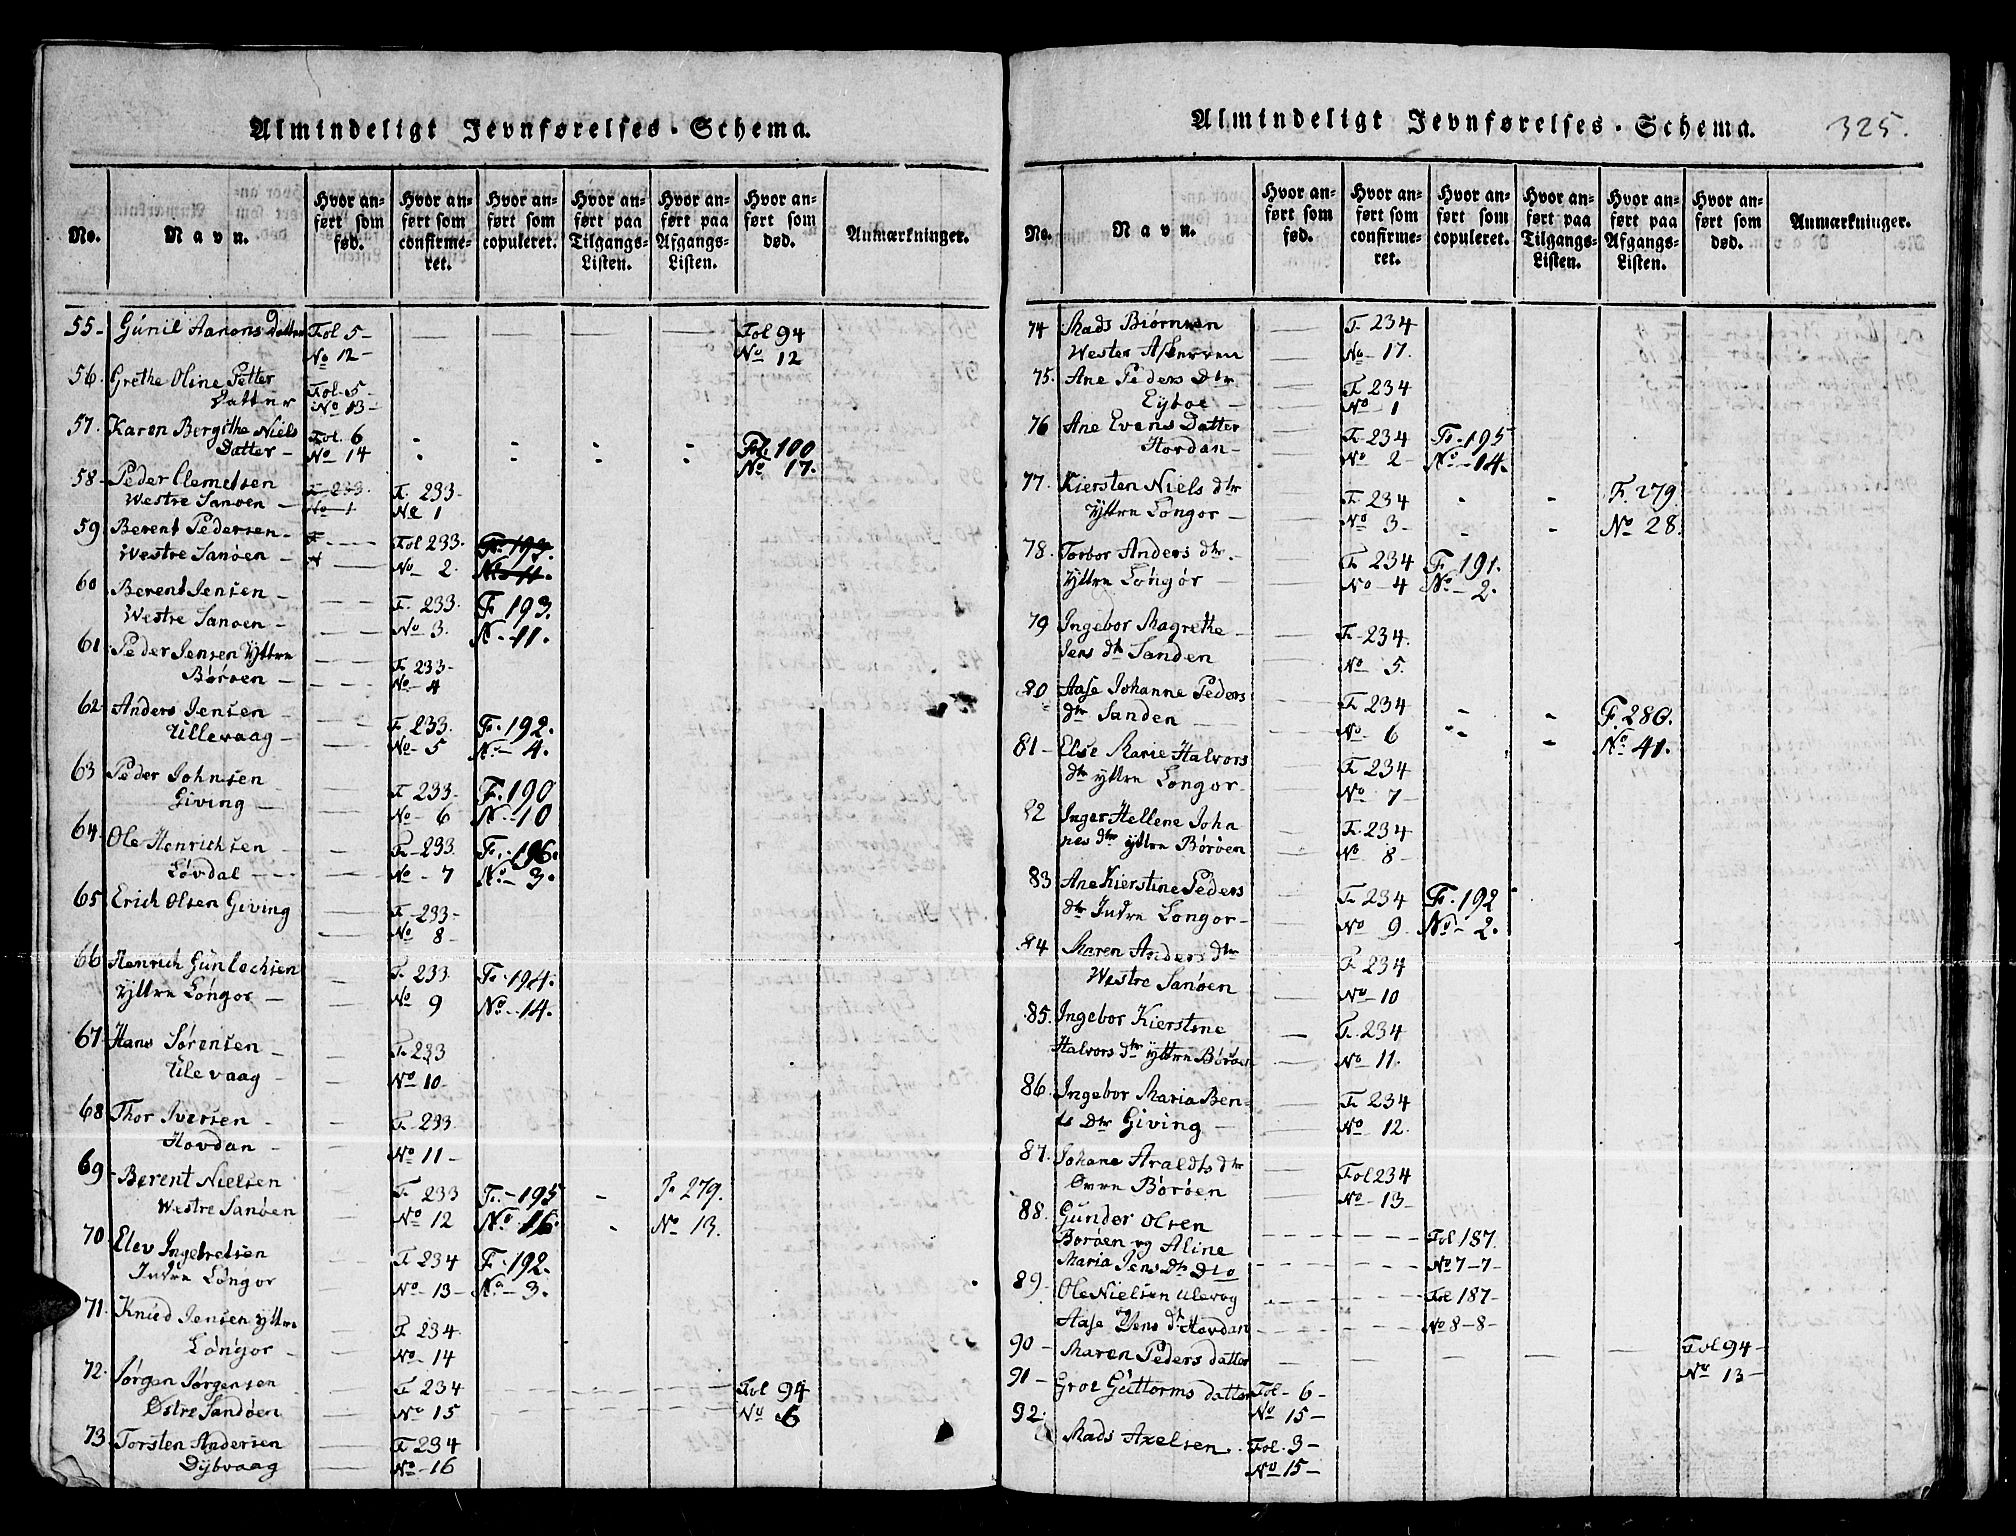 Almindeligt Jevnførelses-Schema.
No.
Navn.
Hvor anført som fød.
Hvor anført som confirmeret.
Hvor anført som copuleret.
Hvor anført paa Tilgangs-Listen.
Hvor anført paa Afgangs-Listen.
Hvor anført som død.
Anmærkninger.
55- Gunil Aanons Datter Fol 5- Fol 94
No 12- No 12
56. Grethe Oline Petter Fol-5-
Datter No 13-
57. Karen Bergithe Niels Fol. 6 Fol. 100
Datter - No 14 No 17.
58- Peder Clemetsen F 233. F. 233-
Westre Sanøen - No 1 No 1
59 Berent Pedersen- Fol 233. F. 193.
Westre Sanøen - No- 2. No 11.
60 Berend Jensen - F. 233. F. 193.
Westre Sanøen - No 3. N- 11.
61. Peder Jensen Yttre F. 233-
Børøen - No- 4
62 Anders Jensen - F. 233. F. 192.
Ullevaag - No- 5 N.- 4.
63 Peder Johnsen F. 233- F. 190
Giving - No- 6 N.- 10
64. Ole Henrichsen F-233. F.-196.
Løvdal - No- 7 N.- 3.
65. Erich Olsen Giving F-233-
No 8-
66 Henrich Gunlachsen F. 233. F. 194.
Yttre Longor - No 9 No.-14.
67. Hans Sørensen - F. 233
Ulevaag - No 10-
68. Thor Iversen - F. 233.
Hovdan - No 11-
69- Berent Nielsen F. 233 F.-195 F. 279.
Westre Sanøen No 12 No. 16. No 13.
70. Elev Ingebretsen F. 234 F. 192.
Indre Longor No- 13- No- 3.
71. Knud Jensen yttre F. 234
Longor - No- 14
72. Jørgen Jørgensen F 234 Fol 94
Østre Sandøen No 15 No 6
73. Torsten Andersen F. 234
Dybvaag No-16
Almindeligt Jevnførelses-Schema. 325.
No.
Navn.
Hvor anført som fød.
Hvor anført som confirmeret.
Hvor anført som copuleret.
Hvor anført paa Tilgangs-Listen.
Hvor anført paa Afgangs-Listen.
Hvor anført som død.
Anmærkninger.
74 Mads Biørnsen F. 234
Wester No- 17.
75. Ane Peders Dtr F. 234
No- 1
76 Ane Evens Datter F. 234 F.-195
Hovdan- No 2- No-14.
77. Kiersten Niels dtr F. 234 F. 279
Yttre Longor - No 3- No 28.
78. Torbor Anders dtr F. 234 F. 191.
Yttre Longor - No- 4 No- 2.
79 Ingebor Magrethe - F-234.
Jens dtr Sanden No- 5.
80 Aase Johanne Peders F. 234 F. 280.
dtr Sanden - No- 6 No- 41.
81- Else Marie Halvors F. 234
dtr yttre Longor- No- 7-
82 Inger Hellene John F. 234
nes dtr yttre Børøen No- 8-
83 Ane Kierstine Peders F. 234 F. 192
dtr Indre Longor- No- 9. No- 2.
84 Maren Anders dtr F. 234
Westre Sanøen No-10
85. Ingebor Kierstine F. 234
Halvors dtr yttre Børøen No- 11.
86. Ingebor Maria Ben- F. 234
ts Dtr Giving - No- 12.
87. Johane Araldts dtr Fol 234
Øvre Børøen No- 13-
88. Gunder Olsen
Borøen og Aline Fol 187.
Maria Jens Dtr Dto No 7-7-
89- Ole Nielsen ulevag Fol 187-
og
Aase Jens dtr Hovdan No 8-8-
90- Maren Peders datter Fol 94-
No 13-
91- Groe Guttorms datter Fol- 6-
No 15-
92. Mads Axelsen. Fol. 3-
No 15-